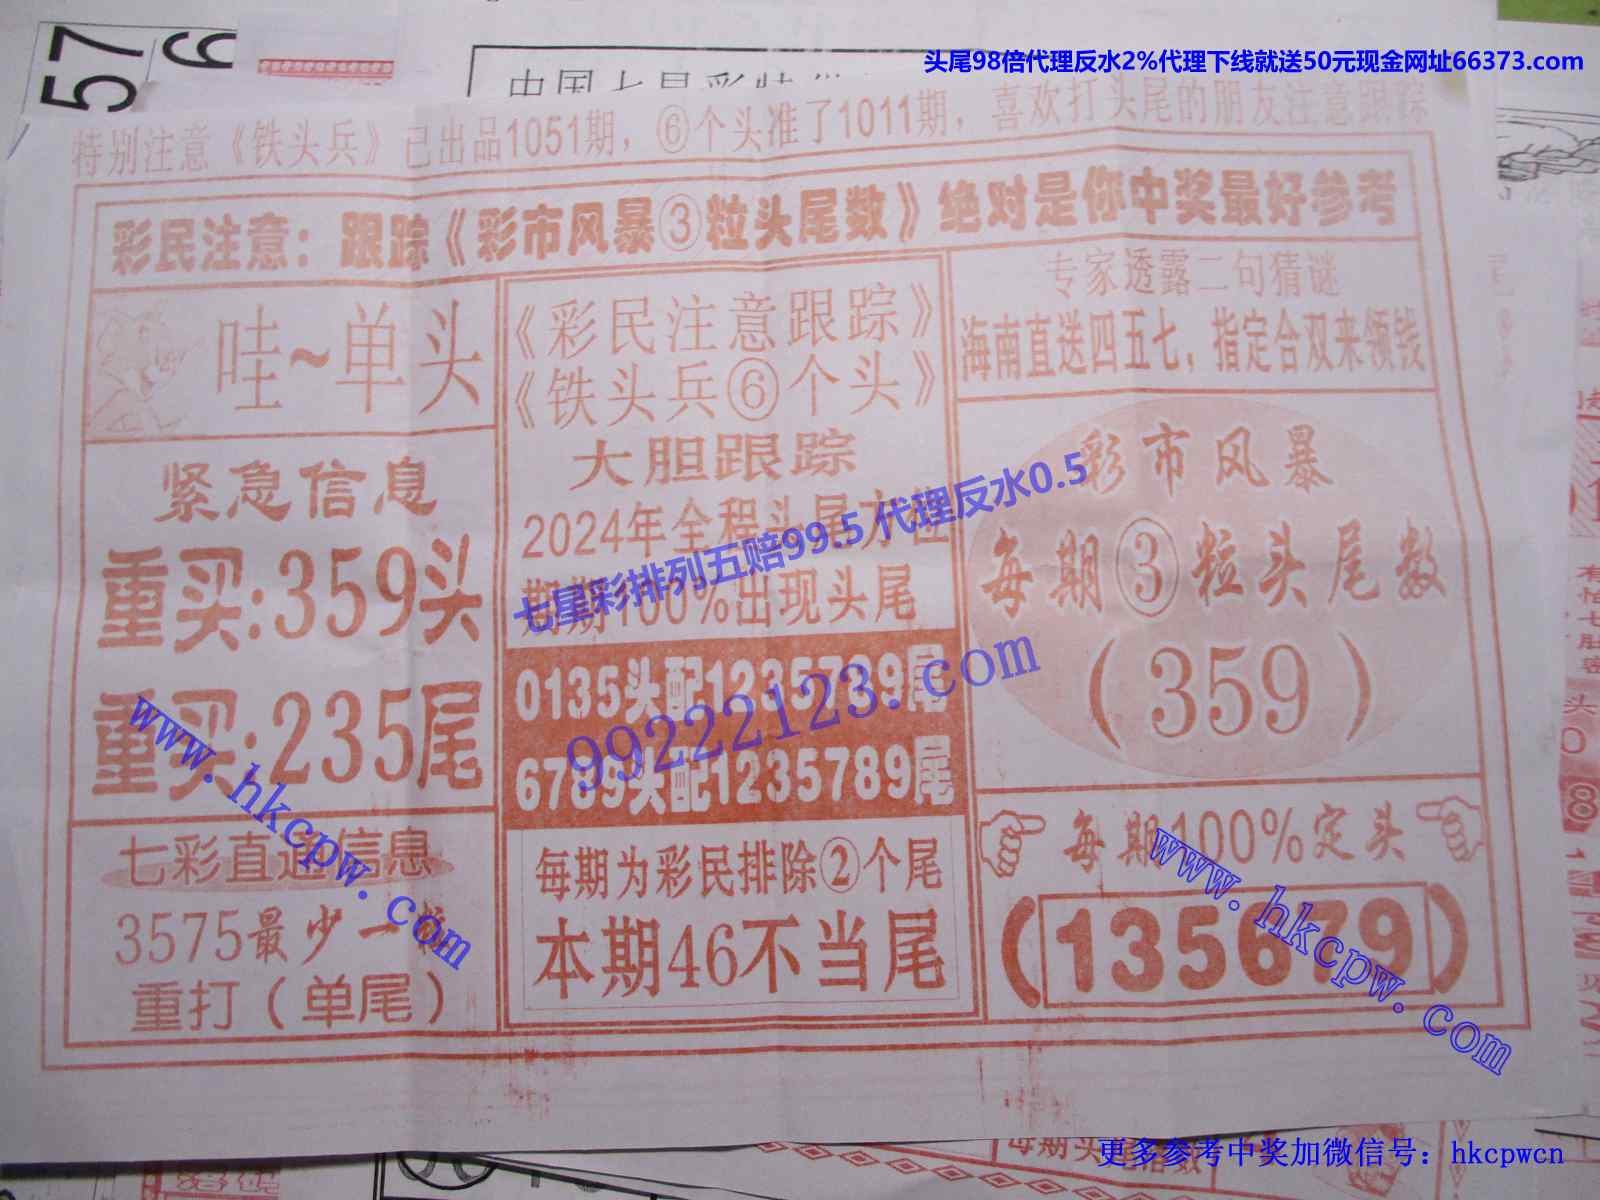 头尾98倍代理反水2%代理下线就送50元现金网址66373.com
57
6
中国七星彩
特别注意《铁头兵》已出品1051期，⑥个头准了1011期，喜欢打头尾的朋友注意跟踪
彩民注意：跟踪《彩市风暴③粒头尾数》绝对是你中奖最好参考
哇~单头
紧急信息
重买:359头
重买:235尾
七彩直通信息
3575最少一
重打（单尾）
《彩民注意跟踪》
《铁头兵⑥个头》
大胆跟踪
2024年全程头尾方位
期期100%出现头尾
0135头配1235789尾
6789头配1235789尾
每期为彩民排除②个尾
本期46不当尾
专家透露二句猜谜
海南直送四五七，指定合双来领钱
彩市风暴
每期③粒头尾数
（359）
每期100%定头
（135679）
七星彩排列五赔99.5 代理反水0.5
99222123.com
www.hkcpw.com
www.hkcpw.com
每期头
更多参考中奖加微信号：hkcpwcn